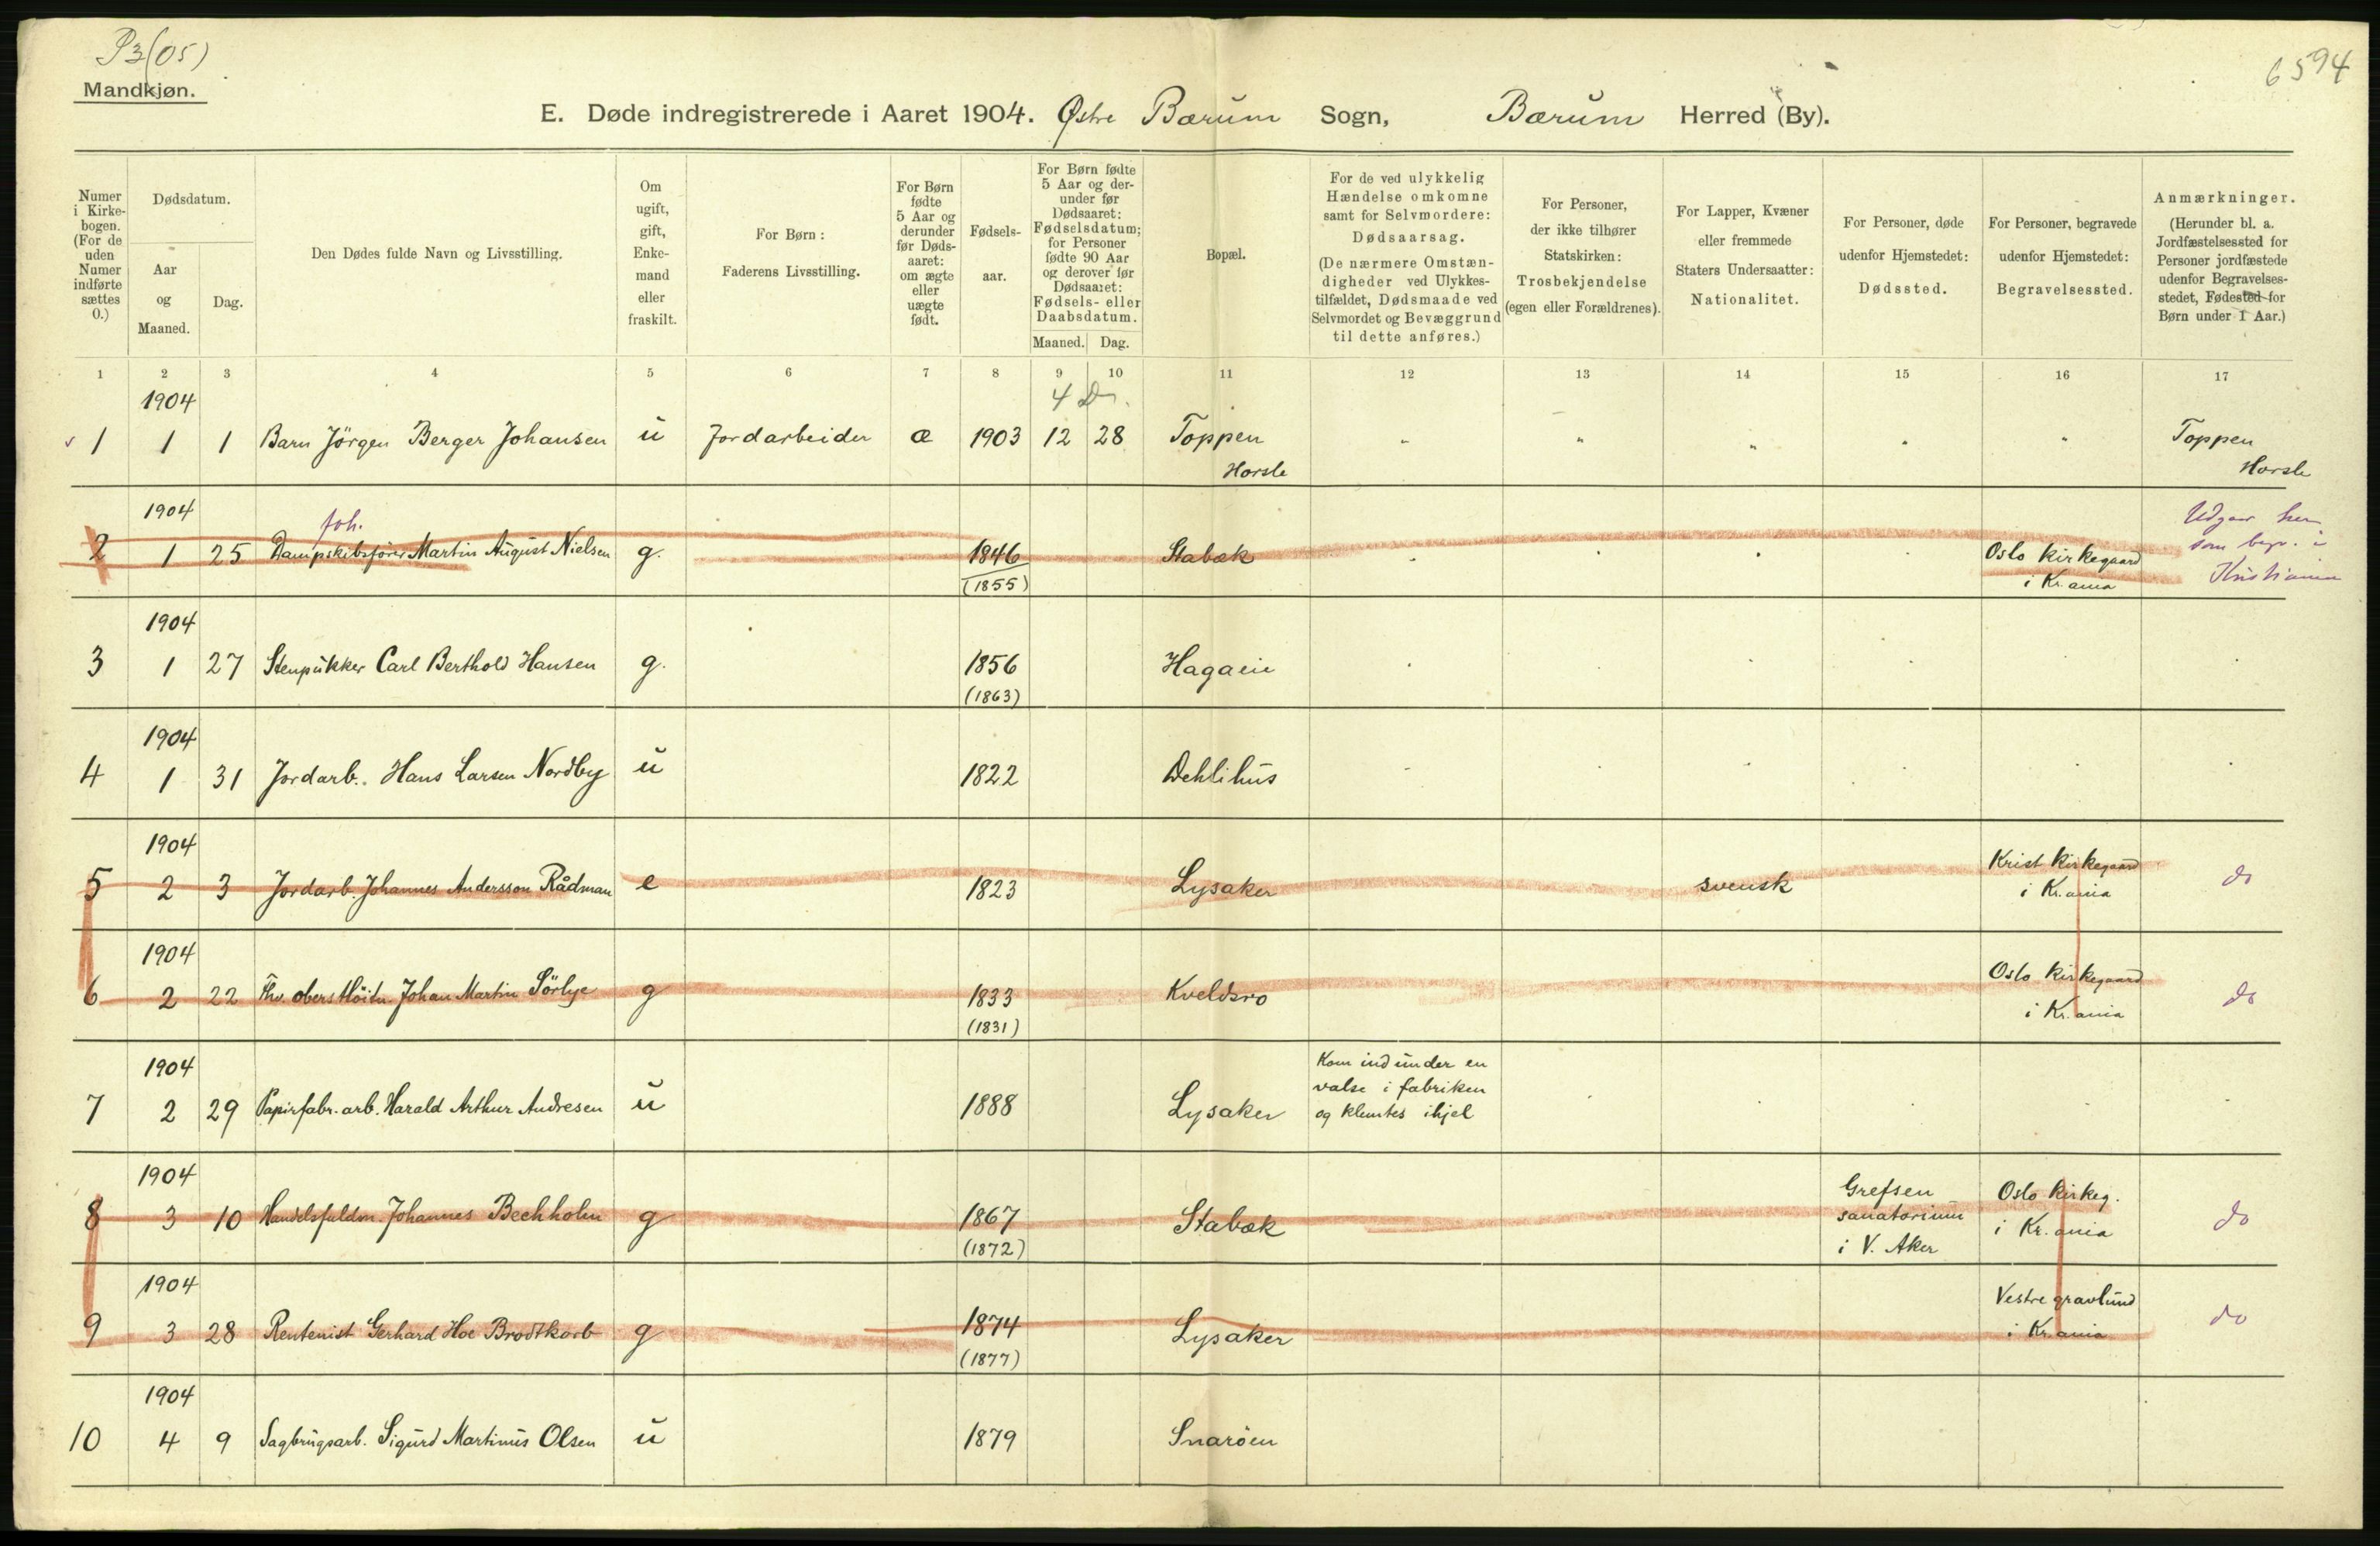 P3(05)
6594
Mandkjøn.
E. Døde indregistrerede i Aaret 1904. Østre Bærum Sogn, Bærum Herred (By).
Numer i Kirkebogen. (For de uden Numer indførte sættes 0.)
Dødsdatum.
Aar og Maaned.
Dag.
Den Dødes fulde Navn og Livsstilling.
Om ugift, gift, Enkemand eller fraskilt.
For Børn: Faderens Livsstilling.
For Børn fødte 5 Aar og derunder før Dødsaaret: om ægte eller uægte født.
Fødselsaar.
For Børn fødte 5 Aar og derunder før Dødsaaret: Fødselsdatum; for Personer fødte 90 Aar og derover før Dødsaaret: Fødsels- eller Daabsdatum.
Maaned. Dag.
Bopæl.
For de ved ulykkelig Hændelse omkomne samt for Selvmordere: Dødsaarsag. (De nærmere Omstændigheder ved Ulykkestilfældet, Dødsmaade ved Selvmordet og Bevæggrund til dette anføres.)
For Personer, der ikke tilhører Statskirken: Trosbekjendelse (egen eller Forældrenes).
For Lapper, Kvæner eller fremmede Staters Undersaatter: Nationalitet.
For Personer, døde udenfor Hjemstedet: Dødssted.
For Personer, begravede udenfor Hjemstedet: Begravelsessted.
Anmærkninger. (Herunder bl. a. Jordfæstelsessted for Personer jordfæstede udenfor Begravelsesstedet, Fødested for Børn under 1 Aar.)
1 2 3 4 5 6 7 8 9 10 11 12 13 14 15 16 17
1904 4 D.
1 1 1 Barn Jörgen Berger Johansen u Jordarbeider æ 1903 12 28 Toppen " " " " " Toppen
Horsle Horsle
1904 Joh. Udgaar her
2 1 25 Dampskibsfører Martin August Nielsen g. 1846 Stabæk Oslo kirkegaard som begr. i
(1855) i Kr.ania Kristiania
1904
3 1 27 Stenpukker Carl Berthold Hansen g. 1856 Hagaeie
(1863)
1904
4 1 31 Jordarb. Hans Larsen Nordby u 1822 Dehlihus
1904 Krist kirkegaard
5 2 3 Jordarb. Johannes Andersson Rådman e 1823 Lysaker svensk i Kr.ania do
1904 Oslo kirkegaard
6 2 22 Fhv. oberstløitn. Johan Martin Sörlye g 1833 Kveldsro i Kr.ania do
(1831)
1904 Kom ind under en
valse i fabriken
7 2 29 Papirfabr. arb. Harald Arthur Andresen u 1888 Lysaker og klemtes ihjel
1904 Grefsen Oslo kirkeg.
8 3 10 Handelsfuldm. Johannes Bechholm g 1867 Stabæk sanatorium i Kr.ania do
(1872) i V. Aker
1904 Vestre gravlund
9 3 28 Rentenist Gerhard Hoe Brodtkorb g 1874 Lysaker i Kr.ania do
(1877)
1904
10 4 9 Sagbrugsarb. Sigurd Martinus Olsen u 1879 Snaröen